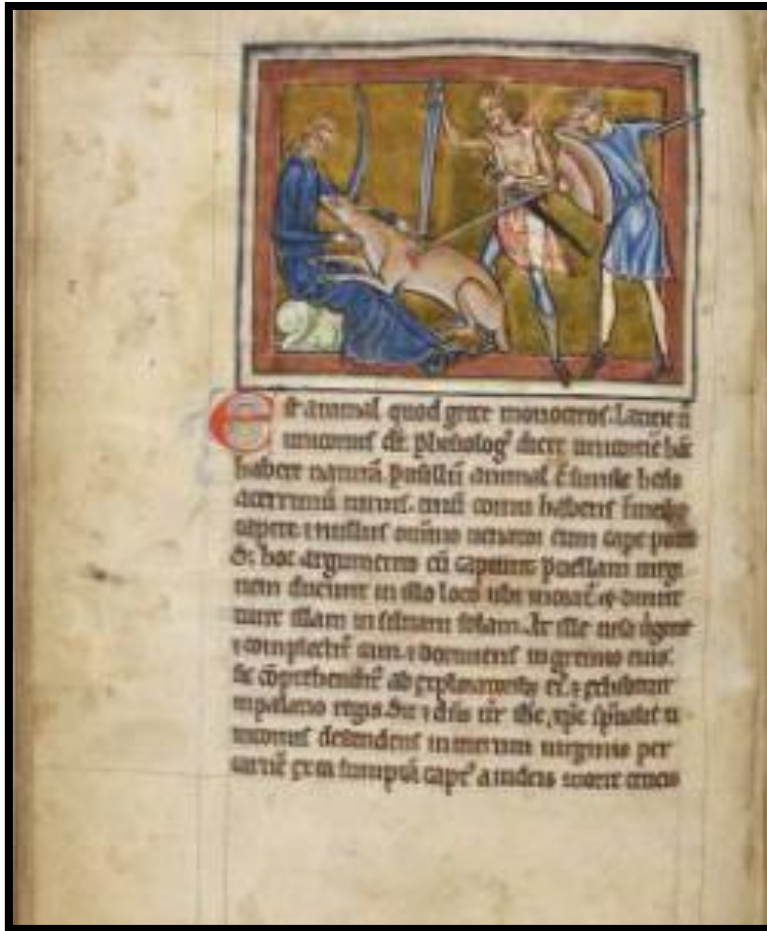 Est animal quod grece monoceros. Latine ũ
unicornis dr̃. phisiolog9 dicit unicornē hāc
habere naturā. pusillū animal ē simile hedo
acerrimū nimis. unū cornu habens
capite. ⁊ nullus omnino uenator eum cape
S; hoc argumento eū capiunt puellam uirgi
nem ducunt in illo loco ubi morat̃. & dimit
tunt illam in siluam solam. At ille uisa
⁊ complectit̃ eam. ⁊ dormiens in gremio eius.
sic cōprehendit̃ ab ⁊ exhibetur
in palatio regis. Sic ⁊ dn̄s nr̃ ihc xp̄c u
nicornis descendens in uterum uirginis per
carnē ex ea sumptā capt9 a iudeis morte crucis